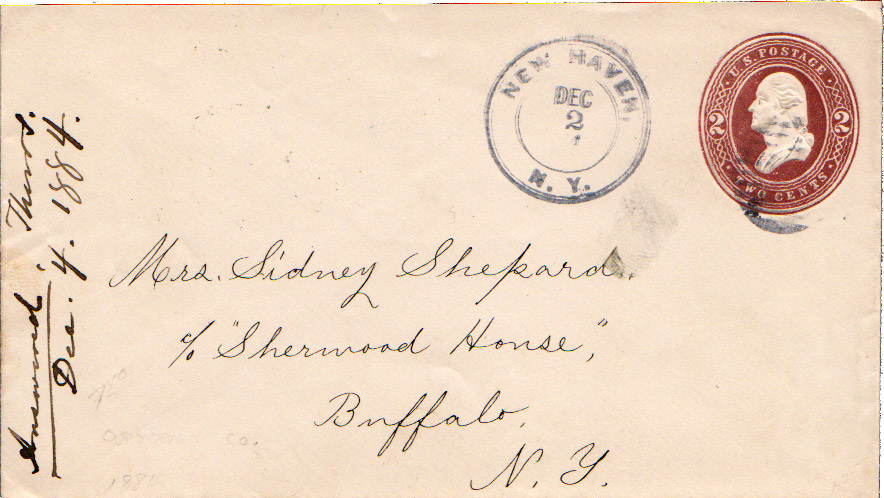 NEW HAVEN,
DEC
2
N. Y.
U.S. POSTAGE
2 2
TWO CENTS
Answered, Thurs.
Dec. 4. 1884.
Mrs. Sidney Shepard,
c/o "Sherwood House",
Buffalo,
N. Y.
co.